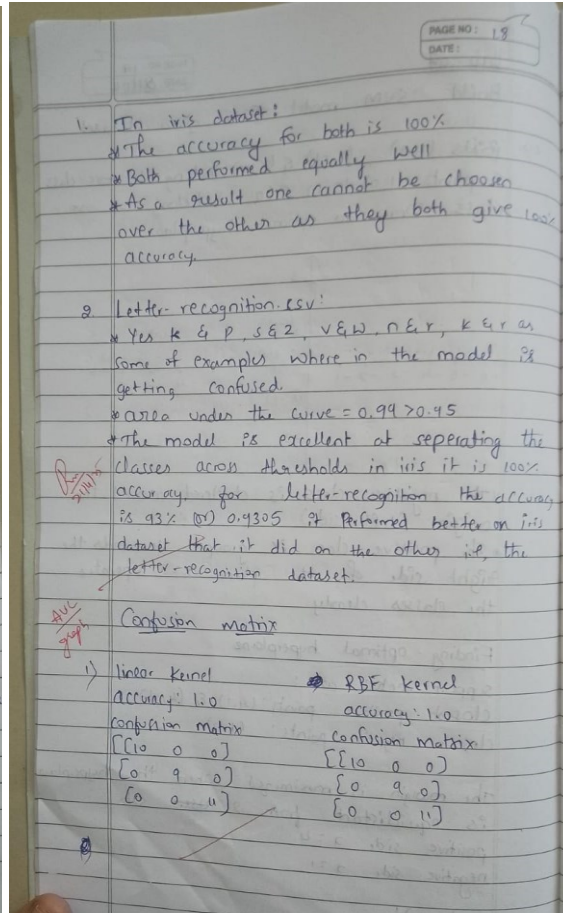 PAGE NO: 18
DATE:
1. In iris dataset:
* The accuracy for both is 100%
* Both performed equally well
* As a result one cannot be choosen
over the other as they both give 100%
accuracy.
2 Letter-recognition.csv:
* Yes k & p, s & z, v & w, n & r, k & r as
some of examples where in the model is
getting confused.
* area under the curve = 0.99 > 0.95
* The model is excellent at seperating the
classes across thresholds in iris it is 100%
accuracy. for letter-recognition the accuracy
is 93% (or) 0.9305 it Performed better on iris
dataset that it did on the other i.e, the
letter-recognition dataset.
AUC
graph
Confusion matrix
1) linear kernel
accuracy: 1.0
confusion matrix
[[10 0 0]
[0 9 0]
[0 0 11]
RBF kernel
accuracy: 1.0
Confusion matrix
[[10 0 0]
[0 9 0]
[0 0 11]